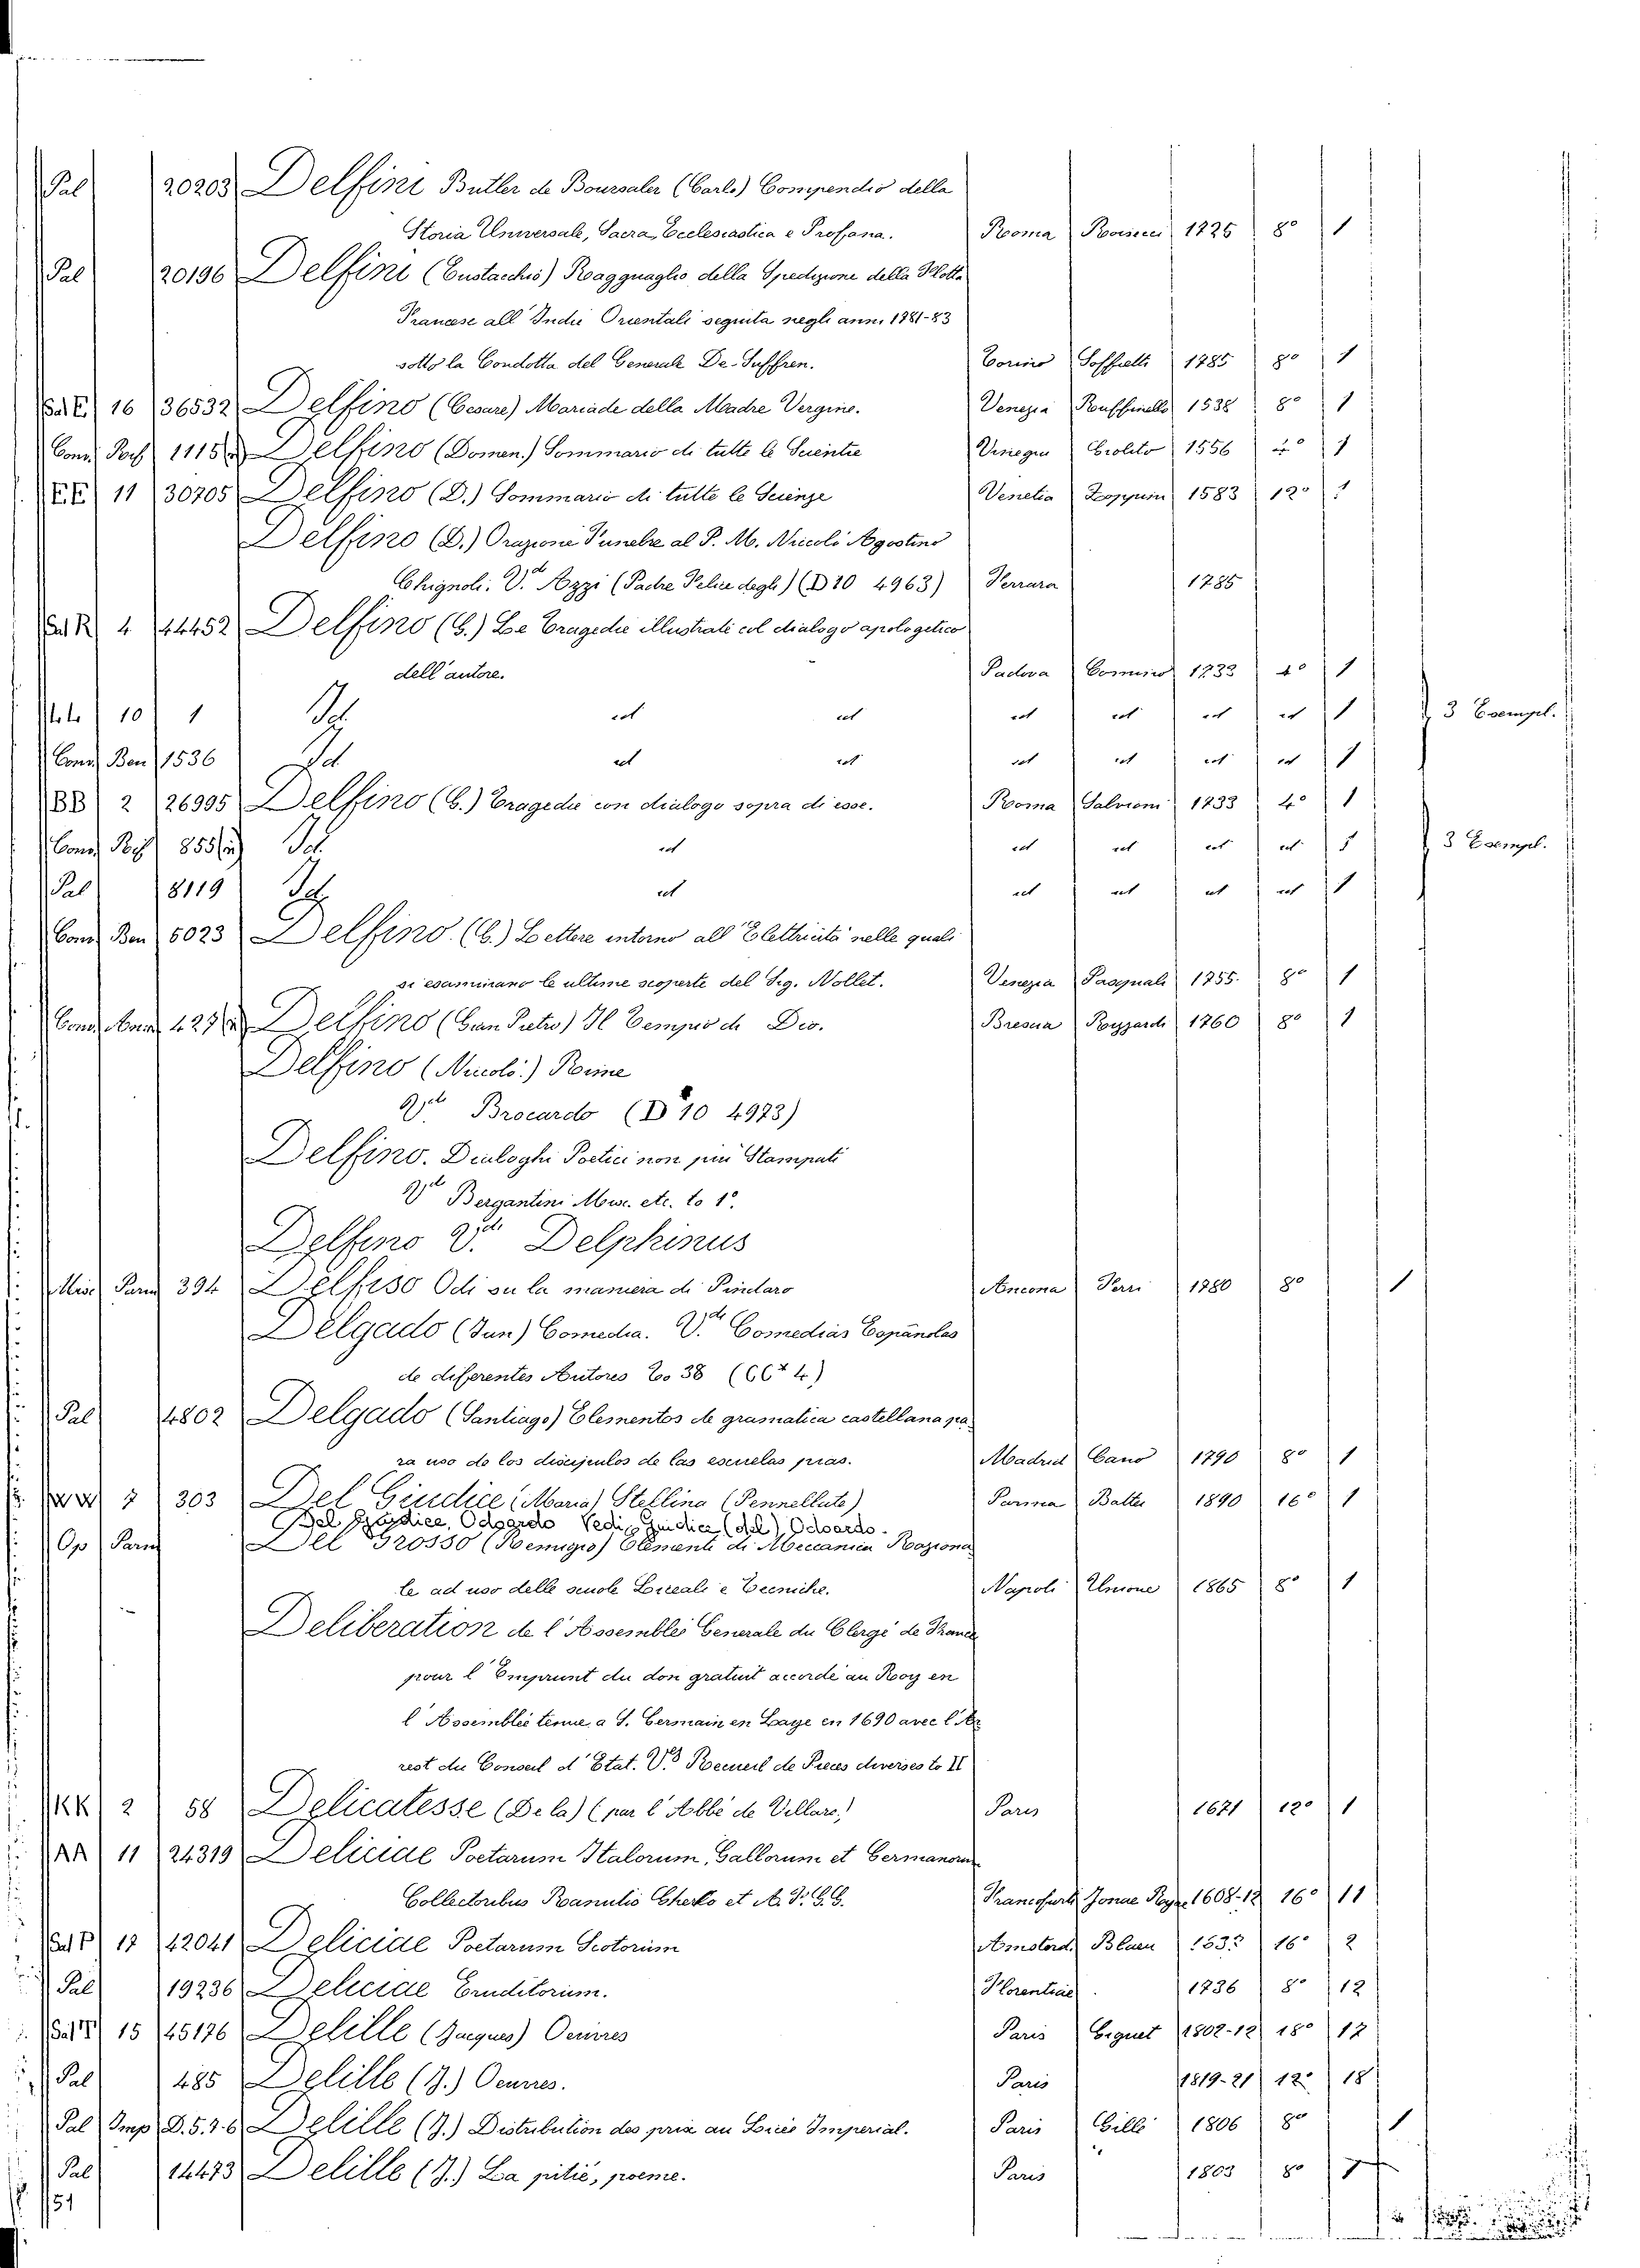 Pal 20203 Delfini Butler de Boursaler (Carlo) Compendio della
Storia Universale, Sacra, Ecclesiastica e Profana. Roma 8º 1
Pal 20196 Delfini (Eustacchio) Ragguaglio della Spedizione della Flotta
Francese all Indie Orientali seguita negli anni 1781-83
sotto la Condotta del Generale De-Suffren. Torino Soffietti 1785 8º 1
16 36532 Delfino (Cesare) Mariade della Madre Vergine. Venezia Rouffinello 1538 8º 1
Conv. 1115 Delfino (Domen.) Sommario di tutte le Scientie Vinegia Giolito 1556 4º 1
EE 11 30705 Delfino (D.) Sommario di tutte le Scienze Venetia Zoppin 1583 12º 1
Delfino (D.) Orazione Funebre al P. M. Niccolò Agostino
Chignoli. V.d Azzi (Padre Felice degli) (D 10 4963) Ferrara 1785
4 44452 Delfino (G.) Le Tragedie illustrate col dialogo apologetico
dell'autore. Padova Comino 1733 4º 1
10 1 Id. id id id id id id 1 3 Esempl.
Conv. Ben 1536 Id id id id id id id 1
BB 2 26995 Delfino (G.) Tragedie con dialogo sopra di esse. Roma Salvioni 1733 4º 1
Conv. 855 Id. id id id id id 1 3 Esempl.
Pal 8119 Id. id id id id id 1
Conv. Ben 5023 Delfino (G.) Lettere intorno all'Elettricità nelle quali
si esaminano le ultime scoperte del Sig. Nollet. Venezia Pasquali 1755. 8º 1
Conv. 427 Delfino (Gian Pietro) Il Tempio di Dio. Brescia Rizzardi 1760 8º 1
Delfino (Nicolò.) Rime
V.d Brocardo (D 10 4973)
Delfino. Dialoghi Poetici non più Stampati
V.d Bergantini Misc. etc. to 1º.
Delfino V.d Delphinus
Misc. Parm 394 Delfiso Odi su la maniera di Pindaro Ancona 1780 8º 1
Delgado (Jun) Comedia. V.d Comedias Españolas
de diferentes Autores to 38 (CC* 4)
Pal 4802 Delgado (Santiago) Elementos de gramatica castellana pa
ra uso de los discipulos de las escuelas pias. Madrid Cano 1790 8º 1
7 303 Del Giudice (Maria) Stellina (Pennellate) Parma Battei 1890 16º 1
Del Giudice, Odoardo Vedi, Giudice (del), Odoardo.
Op Parm Del Grosso (Remigio) Elementi di Meccanica Raziona
le ad uso delle scuole Liceali e Tecniche. Napoli Unione 1865 8º 1
Deliberation de l'Assemblée Generale du Clergé de France
pour l'Emprunt du don gratuit accordé au Roy en
l'Assemblée tenue a S. Germain en Laye en 1690 avec l'Ar
rest du Conseil d'Etat. V.d Recueil de Pieces diverses to II
KK 2 58 Delicatesse (De la) (par l'Abbé de Villars.) Paris 1671 12º 1
AA 11 24319 Deliciae Poetarum Italorum, Gallorum et Germanorum
Collectoribus Ranutio Ghero et A. F. G. G. Francofurti Jonae 1608-12 16º 11
17 42041 Deliciae Poetarum Scotorum Amsterd. Blaeu 1637 16º 2
Pal 19236 Deliciae Eruditorum. Florentiae 1736 8º 12
15 45176 Delille (Jacques) Oeuvres Paris Giguet 1802-12 18º 17
Pal 485 Delille (J.) Oeuvres. Paris 1819-21 12º 18
Pal Imp D.5.7.6 Delille (J.) Distribution des prix au Licée Imperial. Paris Gillé 1806 8º 1
Pal 14473 Delille (J.) La pitié, poeme. Paris 1803 8º 1
151